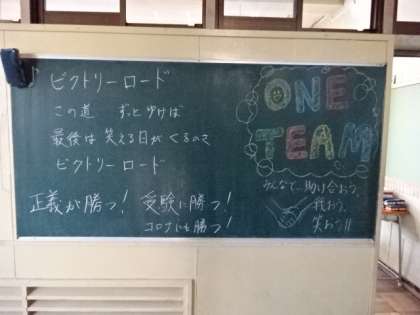 ビクトリーロード
この道 ずっとゆけば
最後は笑える日がくるのさ
ビクトリーロード
正義が勝つ! 受験に勝つ!
コロナにも勝つ!
ONE
TEAM
みんなで、助け合おう、
笑おう!!